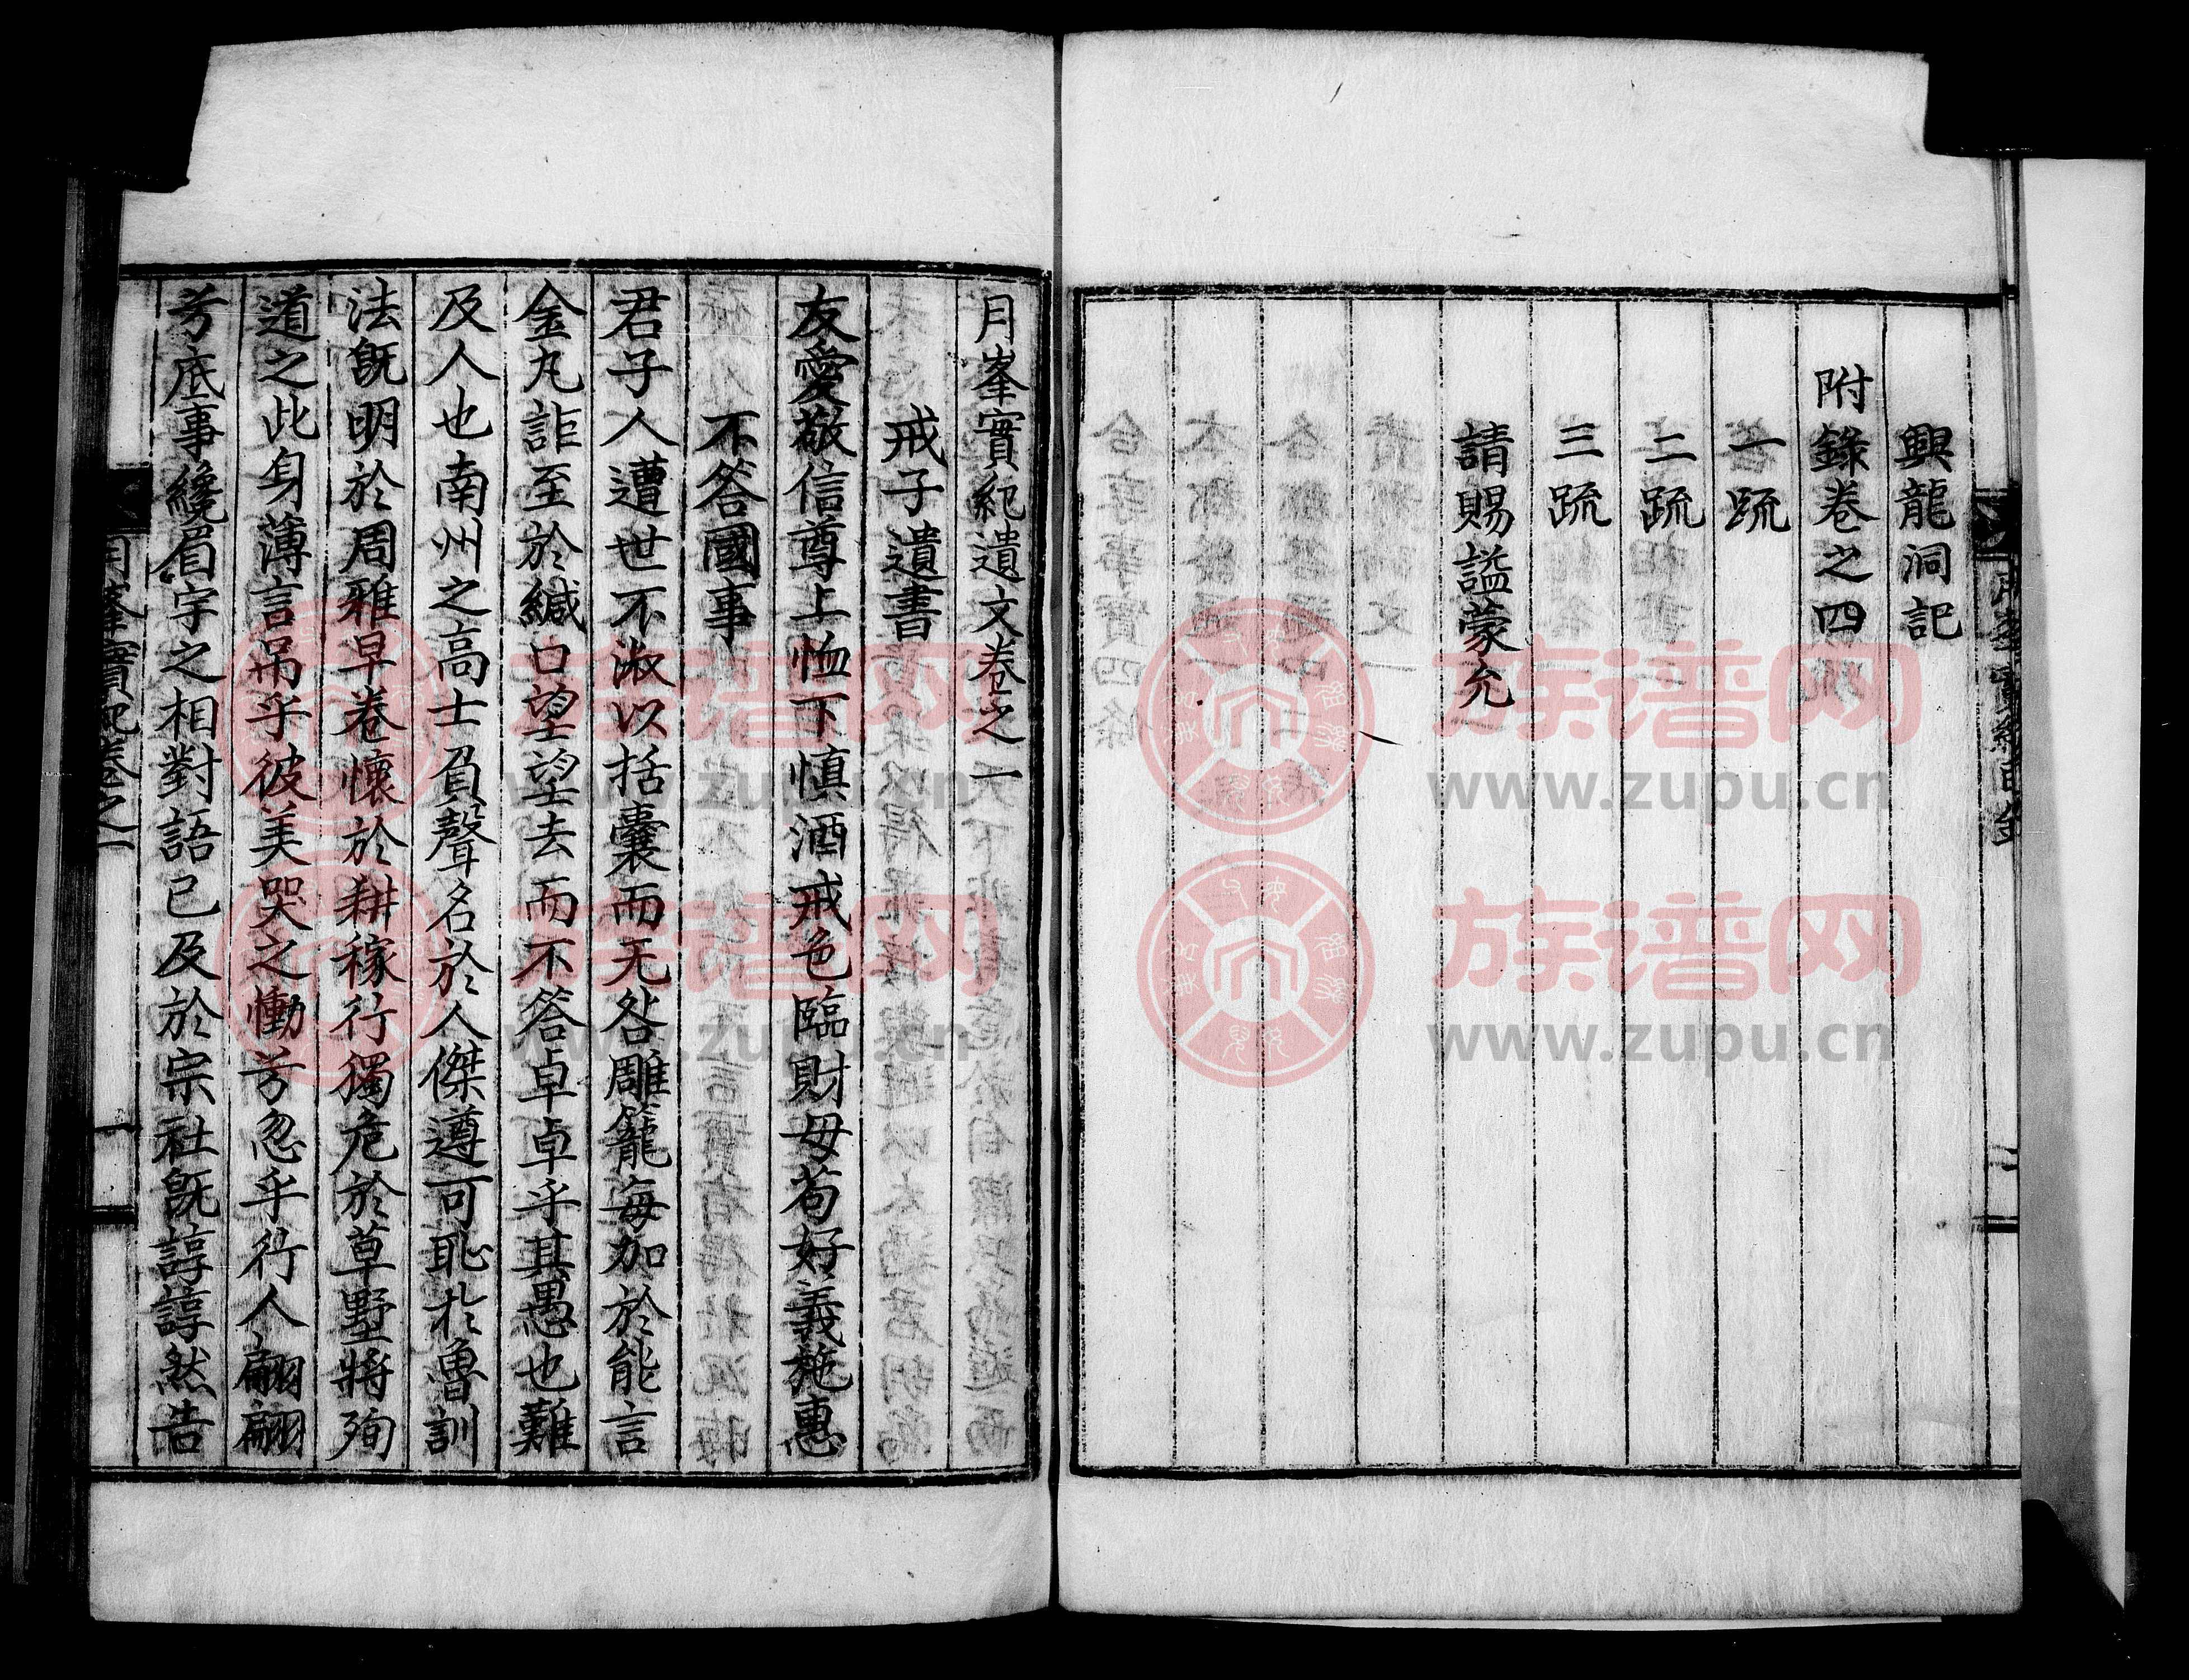 興龍洞記
附錄卷之四
一疏
二疏
三疏
請賜謚蒙允
月峯實紀遺文卷之一
戒子遺書
友愛敬信尊上恤下慎酒戒色臨財毋苟好義施惠
不答國事
君子人遭世不淑以括囊而无咎雕籠每加於能言
金丸詎至於緘口望望去而不答卓卓乎其愚也難
及人也南州之高士負聲名於人傑遵可恥於魯訓
法旣明於周雅早卷懷於耕稼行獨危於草墅將殉
道之此身薄言吊乎彼美哭之慟兮忽乎行人翩翩
兮底事纔眉宇之相對語已及於宗社旣諄諄然告
月峯實紀卷之一
一
族谱网
www.zupu.cn
族谱网
www.zupu.cn
族谱网
www.zupu.cn
族谱网
www.zupu.cn